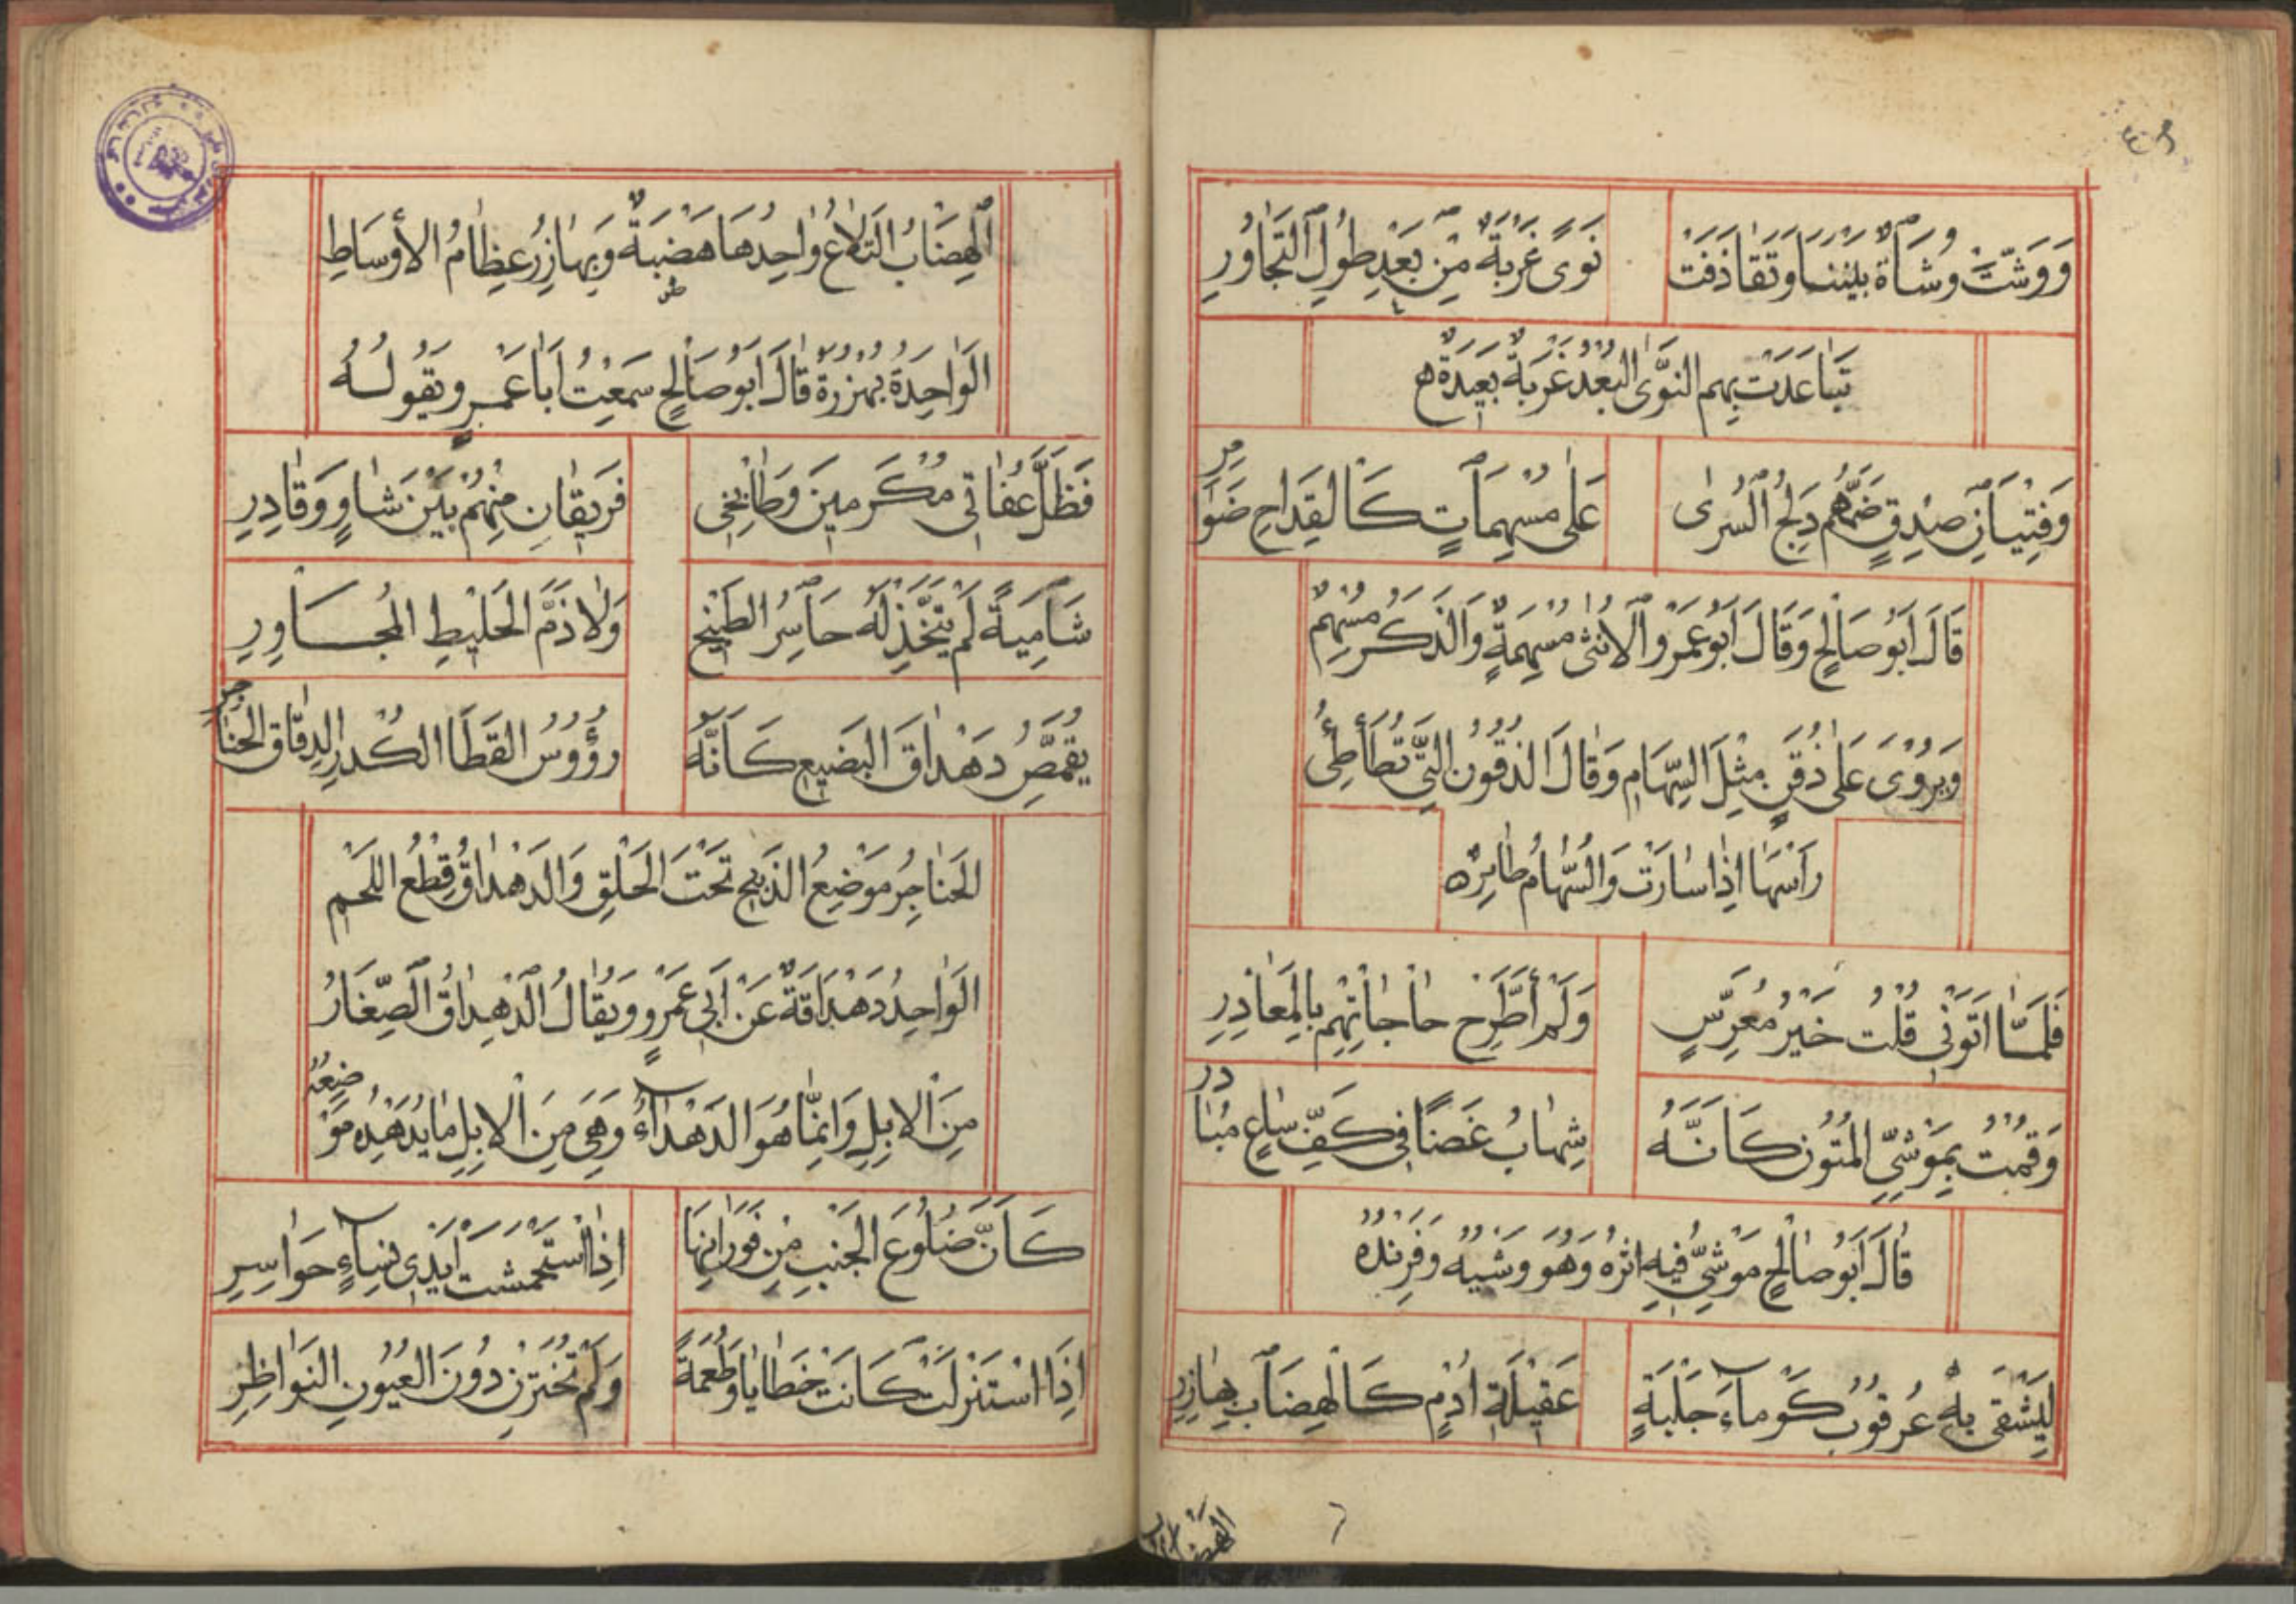 وَوَشَّتْ وُشَاةٌ بَيْنَنَا وَتَقَاذَفَتْ نَوًى غُرْبَةٌ مِنْ بَعْدِ طُولِ التَّجَاوُرِ
تَبَاعَدَتْ بِهِم النَّوَى الْبُعْدُ غُرْبَةٌ بَعِيدَةٌ ه
وَفِتْيَانِ صِدْقٍ ضَمَّهُم دَلَجُ السُّرَى عَلَى مُسْهِمَاتٍ كَالْقِدَاحِ ضَوَامِرِ
قَالَ أَبُو صَالِحٍ وَقَالَ أَبُو عَمْرٍو الأُنْثَى مُسْهِمَةٌ وَالذَّكَرُ مُسْهِمٌ
وَيُرْوَى عَلَى ذُقُنٍ مِثْلِ السِّهَامِ وَقَالَ الذَّقُونُ الَّتِي تُطَأْطِئُ
رَأْسَهَا إِذَا سَارَتْ وَالسَّهَامُ طَائِرٌ ه
فَلَمَّا أَتَوْنِي قُلْتُ خَيْرُ مُعَرَّسٍ وَلَمْ أَطَّرِحْ حَاجَاتِهِمْ بِالمَعَاذِرِ
وَقُمْتُ بِمَوْشِيِّ المُتُونِ كَأَنَّهُ شِهَابُ غَضًا فِي كَفِّ سَاعٍ مُبَادِرِ
قَالَ أَبُو صَالِحٍ مَوْشِيٌّ فِيهِ أَثْرُهُ وَهُوَ وَشْيُهُ وَفِرِنْدُهُ
لِيَشْقَى بِهِ عُرْقُوبُ كَوْمَاءَ جَلْبَةٍ عَقِيلَةِ أُدْمٍ كَالْهِضَابِ بَهَازِرِ
الهضاب
الْهِضَابُ التِّلَاعُ وَاحِدُهَا هَضْبَةٌ وَبَهَازِرُ عِظَامُ الأَوْسَاطِ
الْوَاحِدَةُ بُهْزُرَةٌ قَالَ أَبُو صَالِحٍ سَمِعْتُ أَبَا عَمْرٍو يَقُولُهُ
فَظَلَّ عُفَاتِي مُكْرَمِينَ وَطَابِخِي فَرِيقَانِ مِنْهُمْ بَيْنَ شَاوٍ وَقَادِرِ
شَآمِيَةً لَمْ يُتَّخَذْ لَهُ حَاسِرُ الطَّبِيخِ وَلَا ذَمَّ الْخَلِيطِ الْمُجَاوِرِ
يُقَمِّصُ دَهْدَاقَ الْبَضِيعِ كَأَنَّهُ رُؤُوسُ الْقَطَا الْكُدْرِ الدِّقَاقِ الْحَنَاجِرِ
الْحَنَاجِرُ مَوْضِعُ الذَّبْحِ تَحْتَ الْحَلْقِ وَالدَّهْدَاقُ قِطَعُ اللَّحْمِ
الْوَاحِدُ دَهْدَاقَةٌ عَنْ أَبِي عَمْرٍو وَيُقَالُ الدَّهْدَاقُ الصِّغَارُ
مِنَ الإِبِلِ وَإِنَّمَا هُوَ الدَّهْدَاءُ وَهِيَ مِنَ الإِبِلِ مَا يُدَهْدِهُ مَوْضِعَهُ
كَأَنَّ ضُلُوعَ الْجَنْبِ مِنْ فَوَرَانِهَا إِذَا اسْتَحْمَشَتْ أَيْدِي نِسَاءٍ حَوَاسِرِ
إِذَا اسْتُنْزِلَتْ كَانَتْ خَطَايَا وَطُعْمَةً وَلَمْ تُخْتَزَنْ دُونَ الْعُيُونِ النَّوَاظِرِ